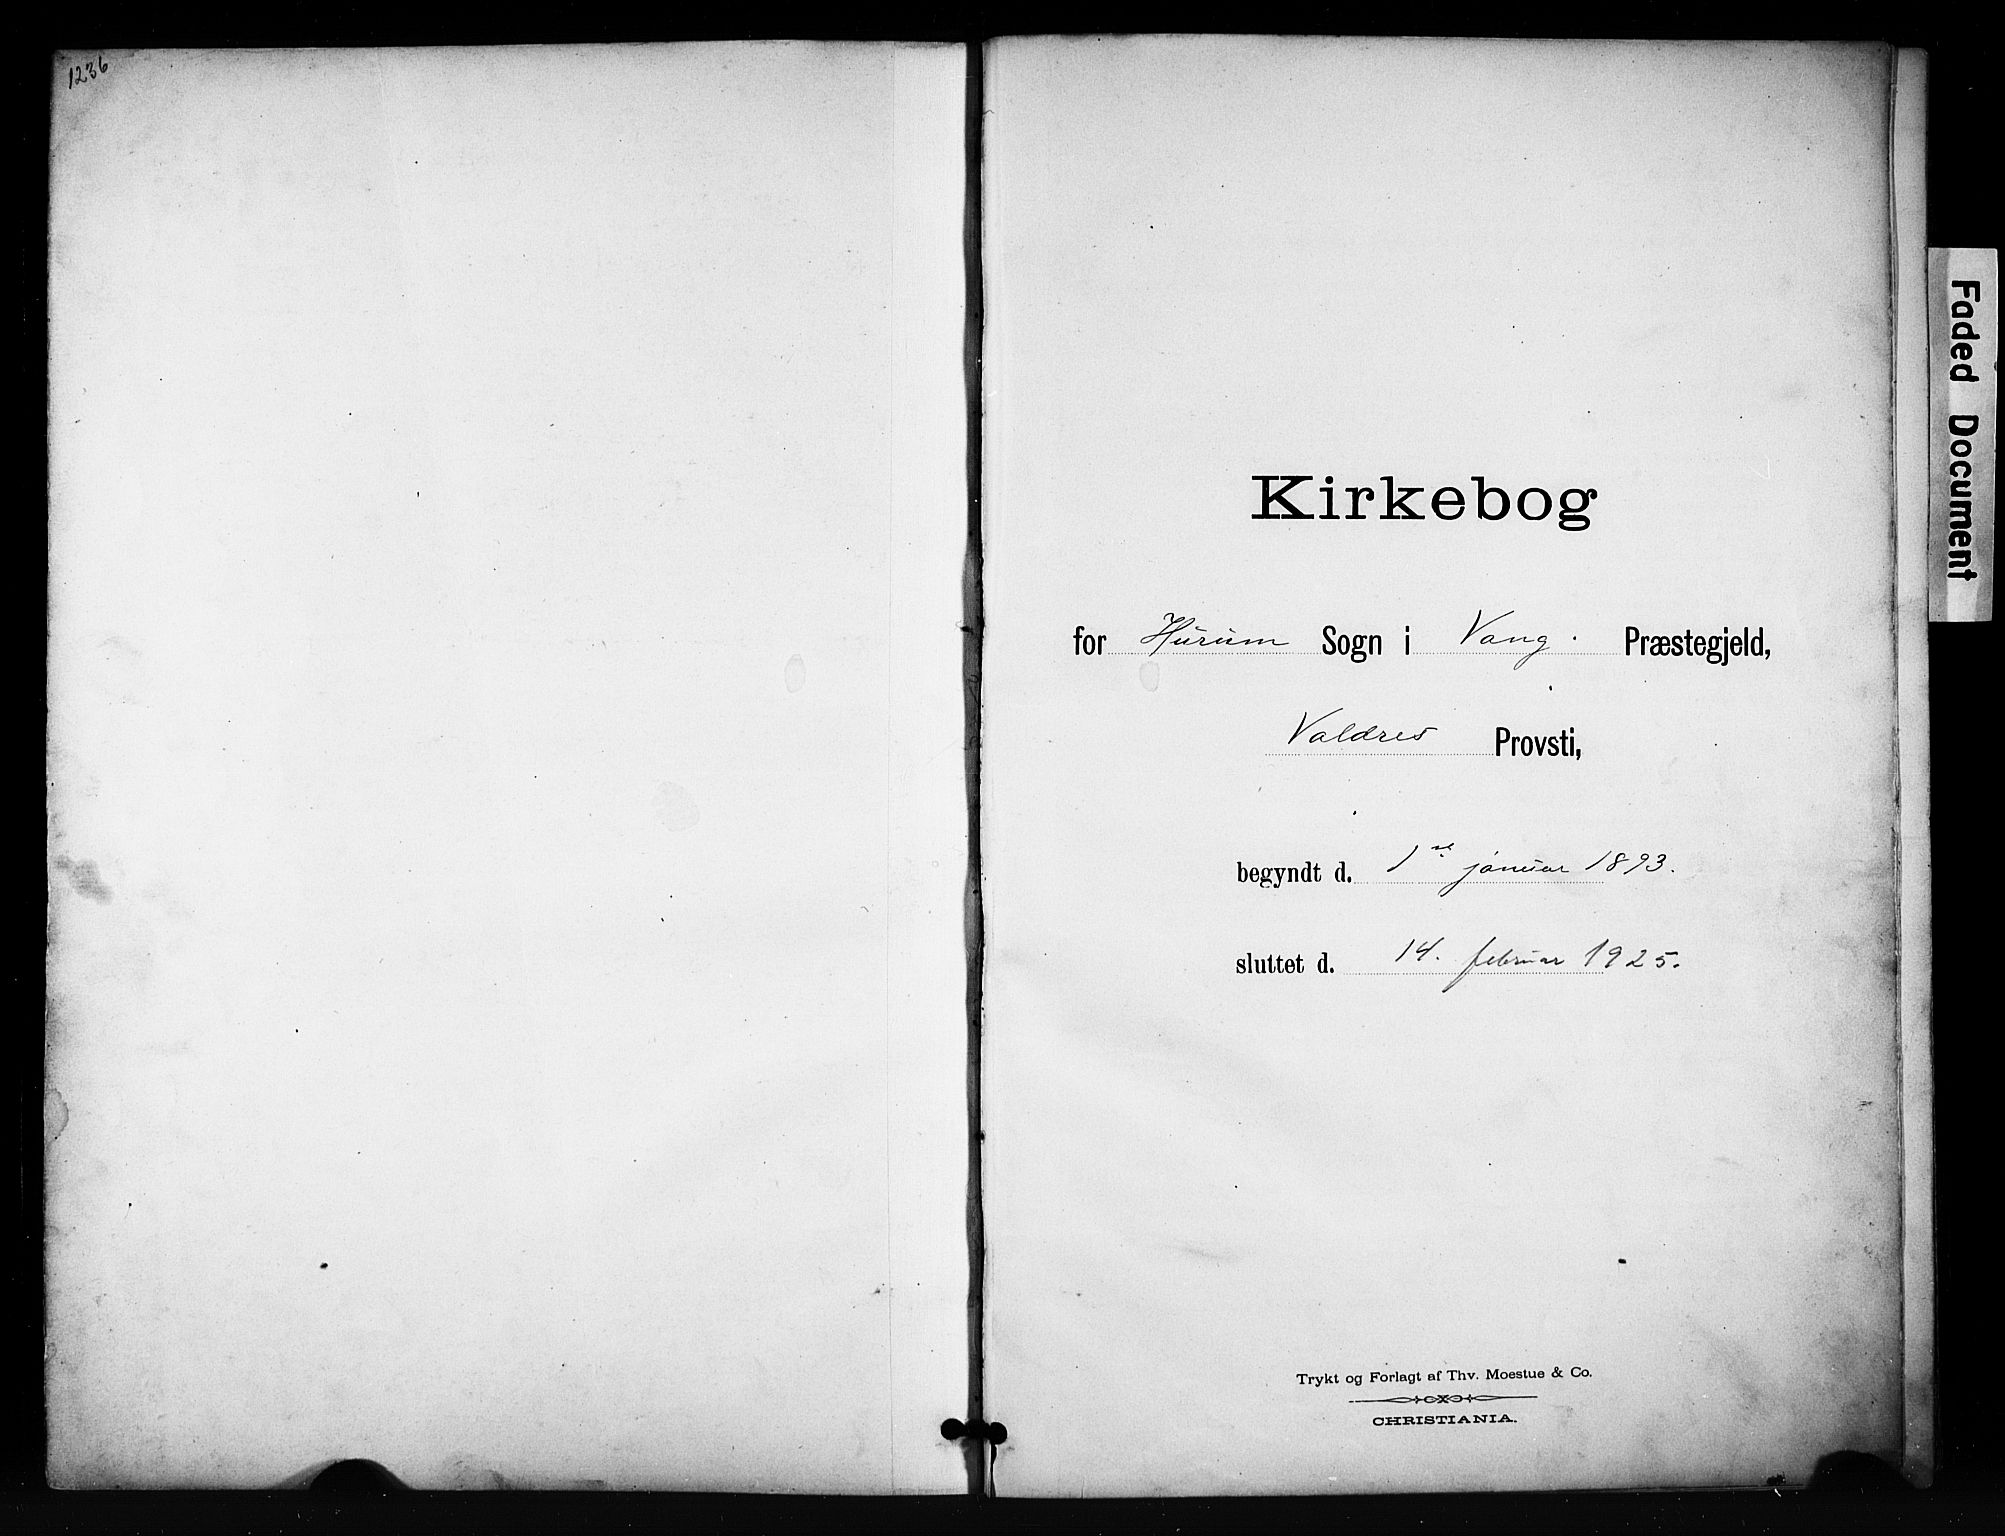 1236
Kirkebog
for Hurum Sogn i Vang. Præstegjeld,
Valdres Provsti,
begyndt d. 1ste januar 1893.
sluttet d. 14. februar 1925.
Trykt og Forlagt af Thv. Moestue & Co.
CHRISTIANIA.
Faded Document